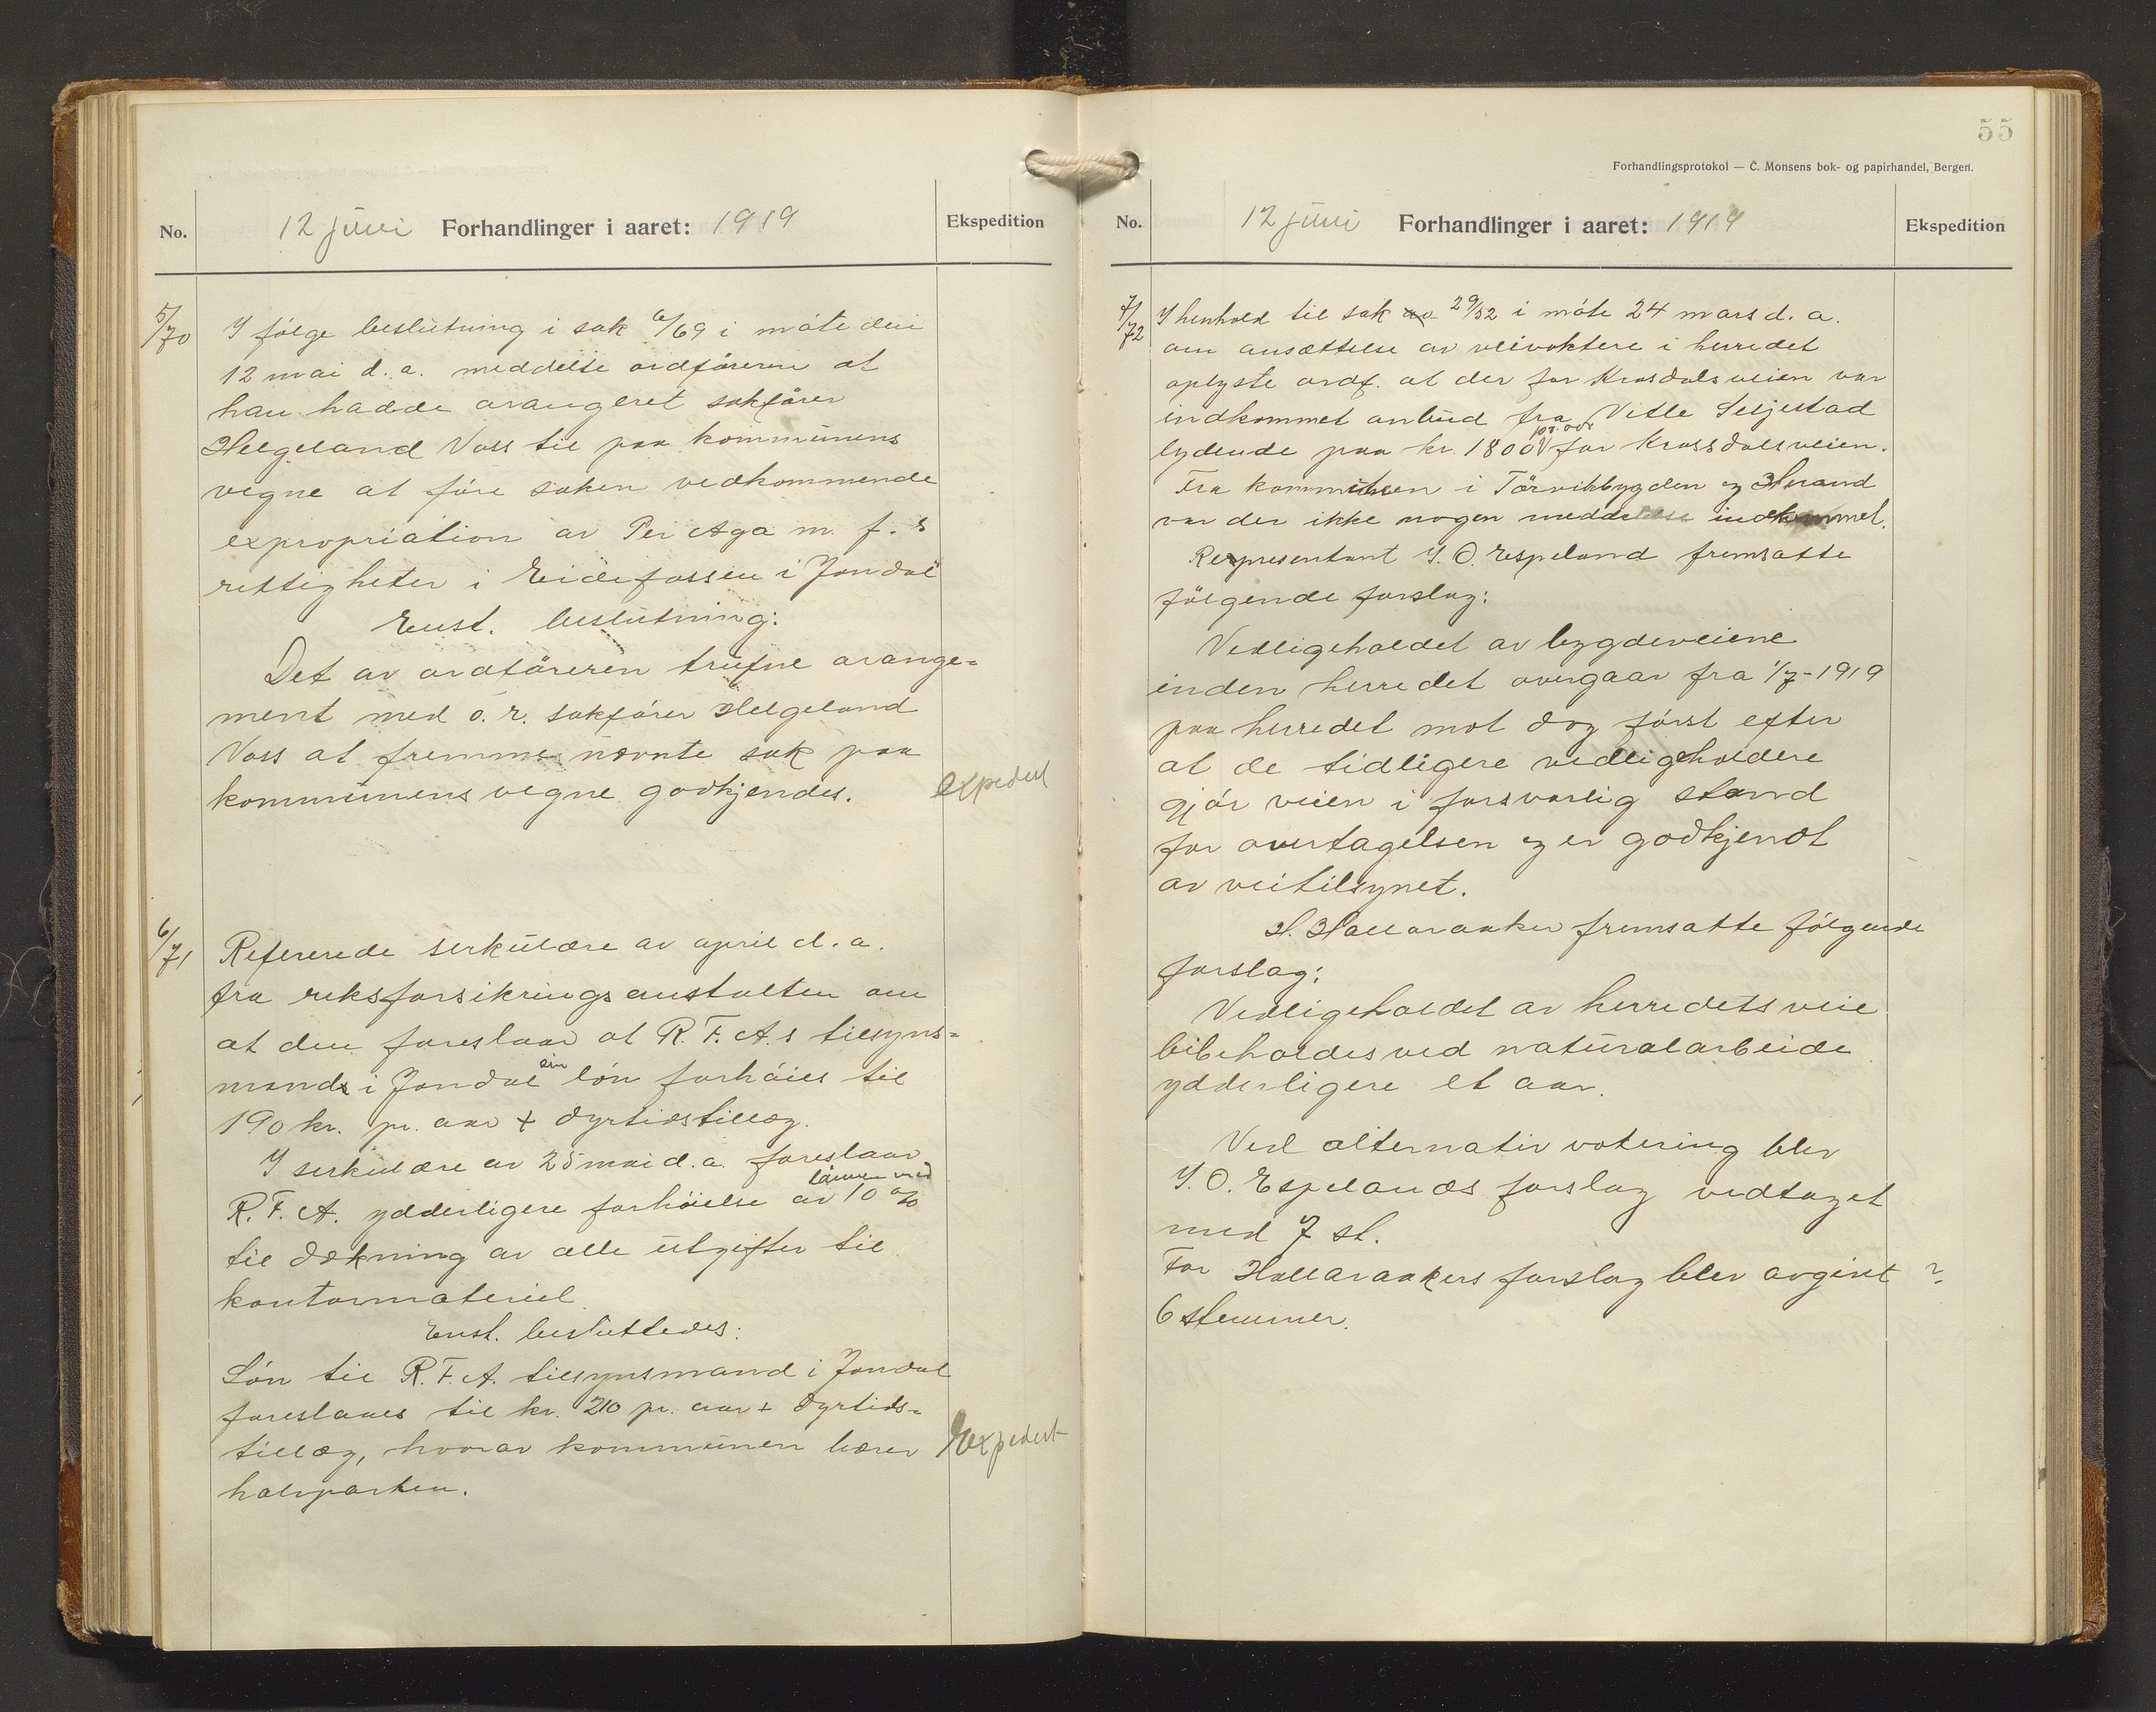 No.
12 juni Forhandlinger i aaret: 1919
Ekspedition
5/70
I følge beslutning i sak 6/69 i møte den
12 mai d. a. meddelte ordføreren at
han hadde arangeret sakfører
Helgeland Voss til paa kommunens
vegne at føre saken vedkommende
expropriation av Per Aga m. f. s
rettigheter i Eidefossen i Jondal
Enst. beslutning:
Det av ordføreren trufne arange-
ment med o. r. sakfører Helgeland
Voss at fremme nævnte sak paa
kommunens vegne godkjendes.
expedert
6/71
Refererede serkulære av april d. a.
fra riksforsikringsanstalten om
at den foreslaar at R. F. A.s tilsyns-
mand i Jondal sin løn forhøies til
190 kr. pr. aar + dyrtidstillæg.
I serkulære av 25 mai d. a. foreslaar
R. F. A. ydderligere forhøielse av lønnen med 10 %
til dækning av alle utgifter til
kontormateriel
Enst. besluttedes:
Løn til R. F. A. tilsynsmand i Jondal
foreslaaes til kr. 210 pr. aar + dyrtids-
tillæg, hvorav kommunen bærer
halvparten.
Expedert
55
Forhandlingsprotokol — C. Monsens bok- og papirhandel, Bergen.
No.
12 juni Forhandlinger i aaret: 1919
Ekspedition
7/72
I henhold til sak 29/52 i møte 24 mars d. a.
om ansættelse av veivoktere i herredet
oplyste ordf. at der for Krosdalsveien var
indkommet anbud fra Vitle Seljestad
lydende paa kr. 1800 pr. aar for Krossdalsveien.
Fra kommiteen i Tørvikbygden og Herand
var der ikke nogen meddelelse indkommet.
Representant I. O. Espeland fremsatte
følgende forslag:
Vedligeholdet av bygdeveiene
inden herredet overgaar fra 1/7-1919
paa herredet mot dog først efter
at de tidligere vedligeholdere
gjør veien i forsvarlig stand
før overtagelsen og er godkjendt
av veitilsynet.
H. Hallaraaker fremsatte følgende
forslag:
Vedligeholdet av herredets veie
bibeholdes ved naturalarbeide
ydderligere et aar.
Ved alternativ votering blev
I. O. Espelands forslag vedtaget
med 7 st.
For Hallaraakers forslag blev avgivt
6 stemmer.